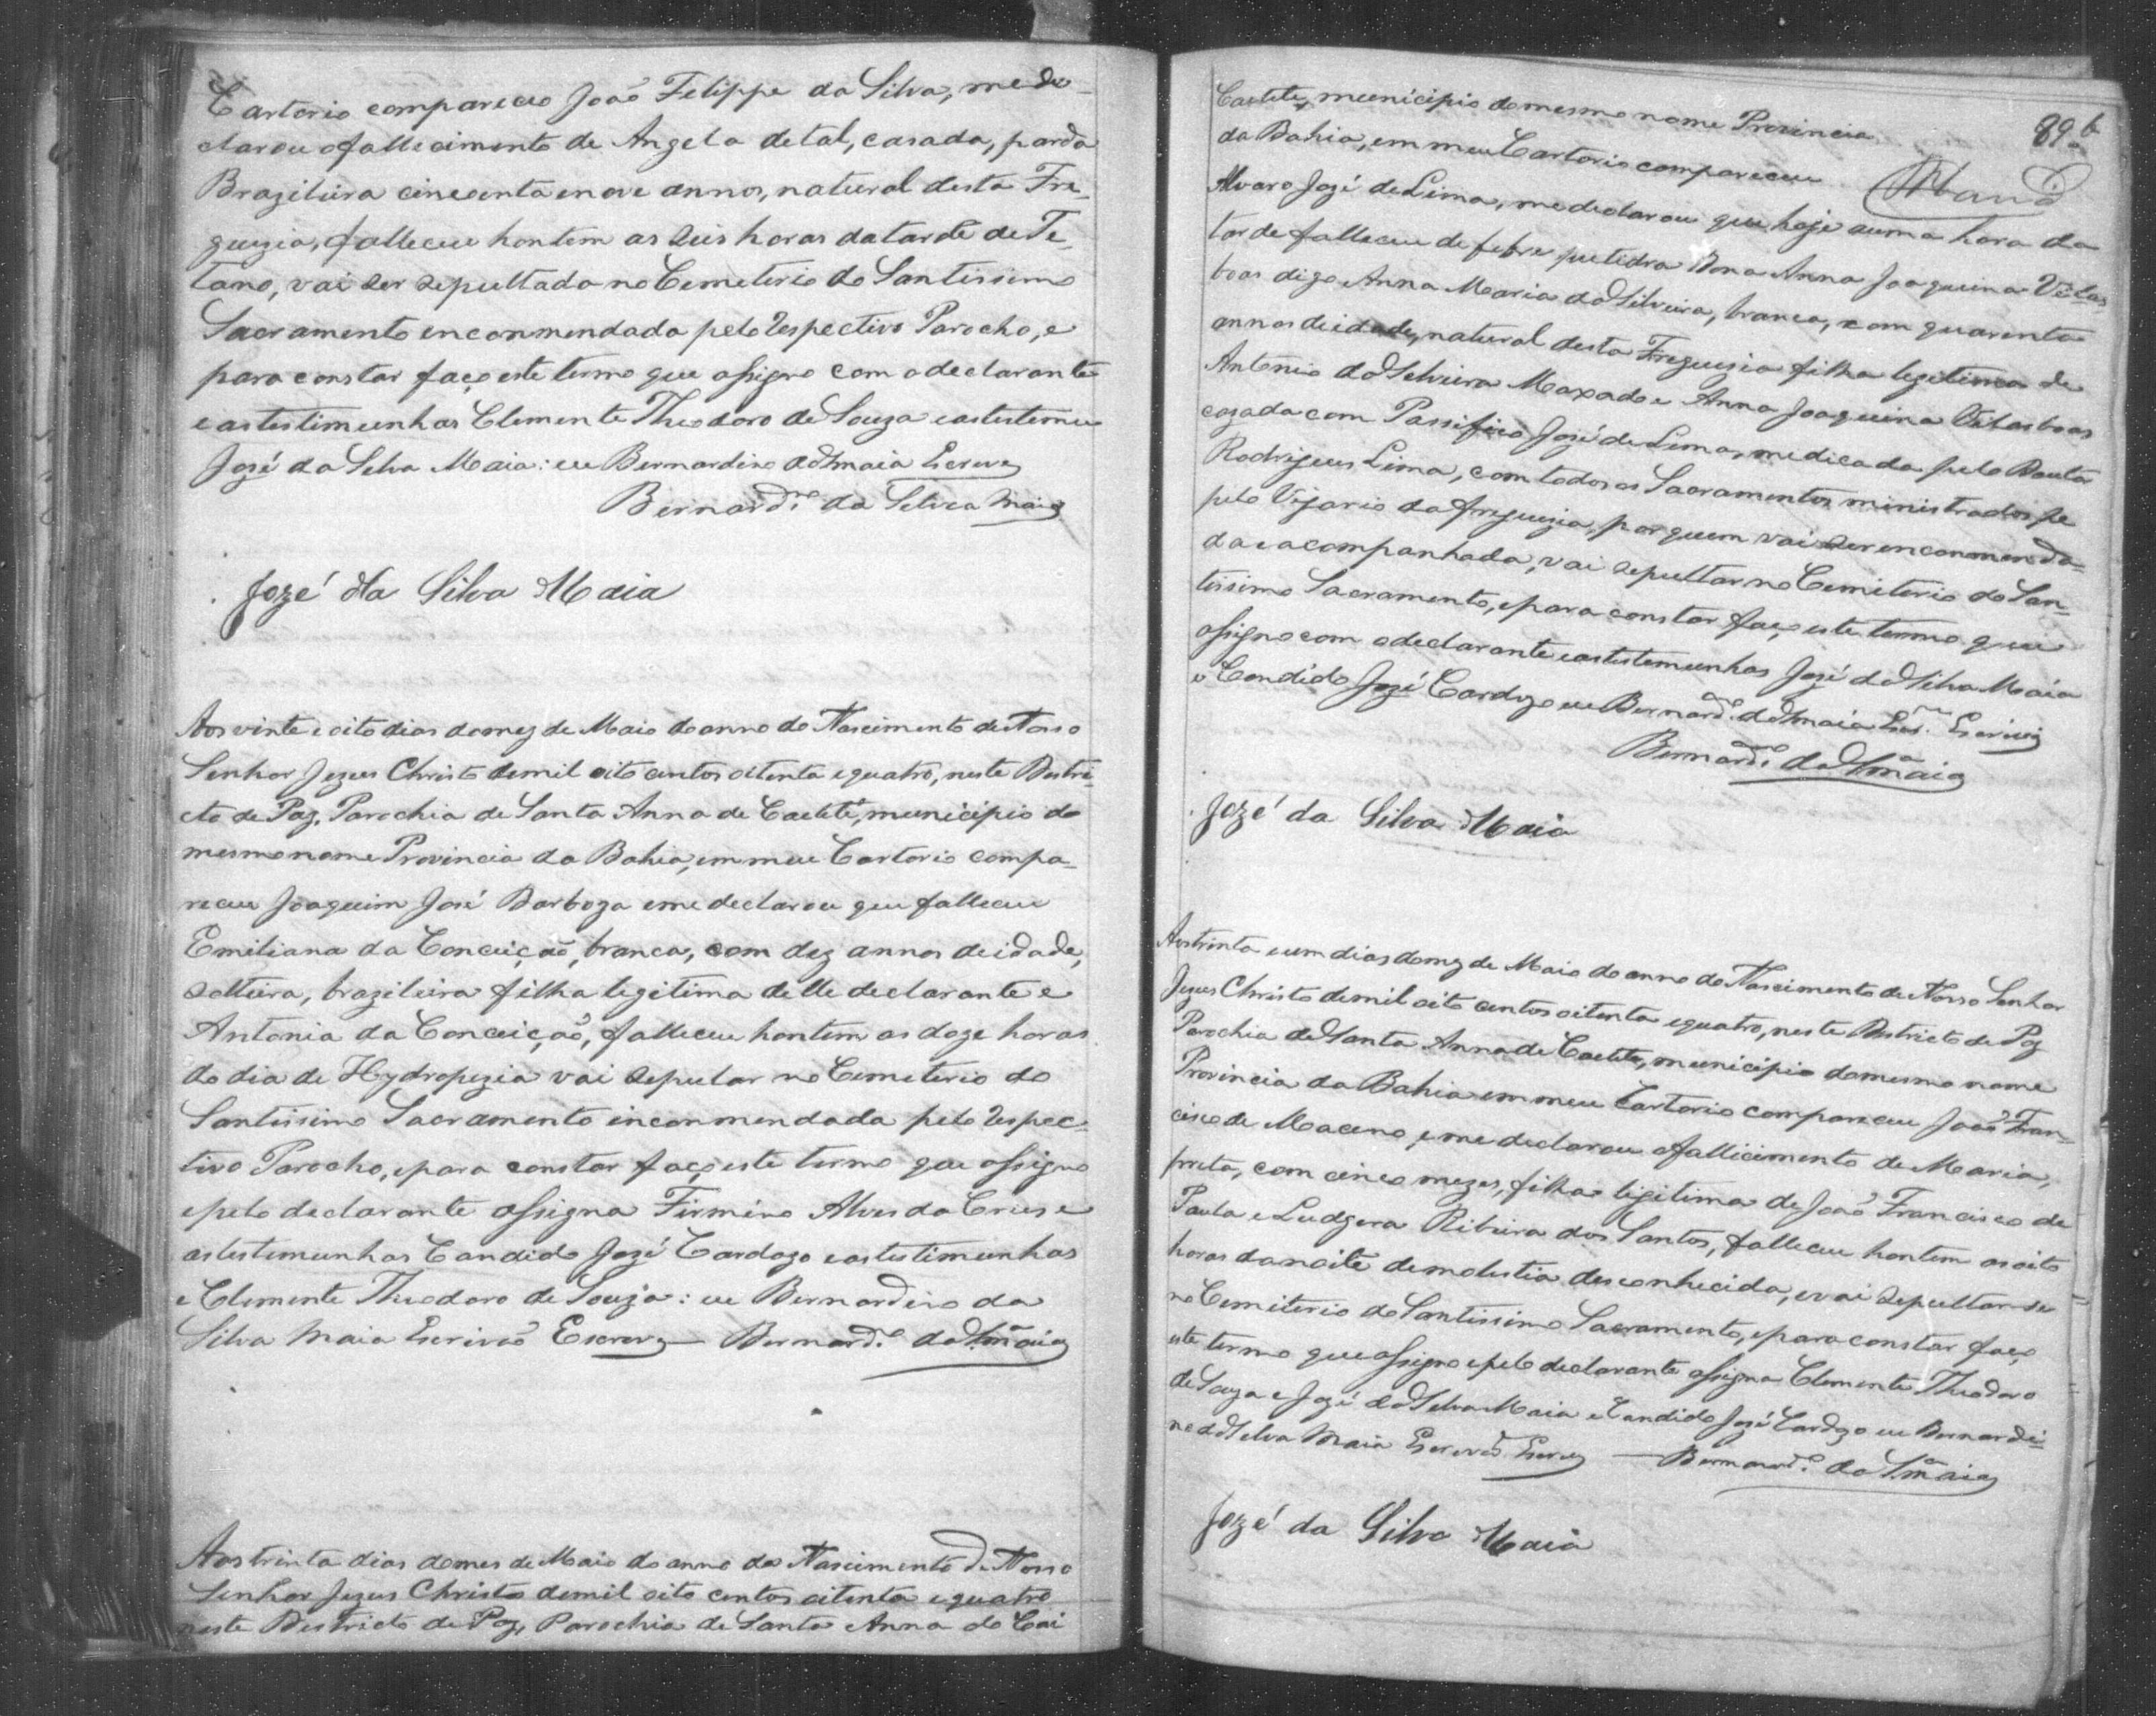 Cartorio compareceo João Felippe da Silva, me de
clarou o fallecimento de Angela de tal, casada, parda
Brazileira cincoenta e nove annos, natural desta Fre_
guezia, falleceu hontem as seis horas da tarde de Te_
tano, vai ser sepultada no Cemeterio do Santissimo
Sacramento enconmendada pelo respectivo Parocho, e
para constar faço este termo que assigno com o declarante
e as testimunhas Clemente Theodoro de Souza e as testemu
José da Silva Maia: eu Bernardino da S.ª Maia Escrevy
Bernard.º da Silva Maia
Jozé da Silva Maia
Aos vinte e oito dias do mez de Maio do anno do Nascimento de Nosso
Senhor Jezus Christo de mil oito centos oitenta e quatro, neste Destri_
cto de Paz, Parochia de Santa Anna de Caeteté, municipio do
mesmo nome Provincia da Bahia, em meu Cartorio compa_
receu Joaquim José Barboza e me declarou que falleceu
Emiliana da Conceição, branca, com dez annos de idade,
solteira, brazileira filha legitima delle declarante e
Antonia da Conceição, falleceu hontem as doze horas
do dia de Hydropezia vai sepultar no Cemeterio do
Santissimo Sacramento inconmendada pelo respec_
tivo Parocho, e para constar faço este termo que assigno
e pelo declarante assigna Firmino Alves da Crus e
as testemunhas Candido José Cardozo e as testimunhas
e Clemente Theodoro de Souza: eu Bernardino da
Silva Maia Escrivão Escrevy Bernard.º da S.ª Maia
Aos trinta dias do mes de Maio do anno do Nascimento de Nosso
Senhor Jezus Christo de mil oito centos oitenta e quatro
neste Destricto de Paz, Parochia de Santa Anna do Cai
89
Caeteté, municipio do mesmo nome Provincia
da Bahia, em meu Cartorio compareceu
Alvaro José de Lima, me declarou que hoje a uma hora da
tarde falleceu de febre putidra Dona Anna Joaquina Vilas
boas digo Anna Maria da Silveira, branca, com quarenta
annos de idade, natural desta Freguezia filha legitima de
Antonio da Selveira Maxado e Anna Joaquina Vilasboas
cazada com Passifico José de Lima, medicada pelo Doutor
Rodrigues Lima, com todos os Sacramentos ministrados pe
pelo Vigario da freguezia, por quem vai ser enconmenda_
da e acompanhada, vai sepultar no Cemiterio do San_
tissimo Sacramento, e para constar faço este termo que
assigno com o declarante e as testemunhas José da Silva Maia
e Candido José Cardozo eu Bernard.º da S.ª Maia Escr.m Escrivy
Bernard.º da S.ª Maia
Jozé da Silva Maia
Aos trinta e um dias do mez de Maio do anno do Nascimento de Nosso Senhor
Jezus Christo de mil oito centos oitenta e quatro, neste Destricto de Paz
Parochia de Santa Anna de Caeteté, municipio do mesmo nome
Provincia da Bahia em meu Cartorio compareceu João Fran_
cisco de Maceno, e me declarou o fallicimento de Maria,
preta, com cinco mezes, filha legitima de João Francisco de
Paula e Ludgera Ribeira dos Santos, falleceu hontem as oito
horas da noite de molestia desconhecida, e vai sepultar-se
no Cemiterio do Santissimo Sacramento, e para constar faço
este termo que assigno e pelo declarante assigna Clemente Theodoro
de Souza e José da Selva Maia e Candido José Cardozo eu Bernardi_
no da Selva Maia Escrevy Bernard.º da S.ª Maia
Jozé da Silva Maia